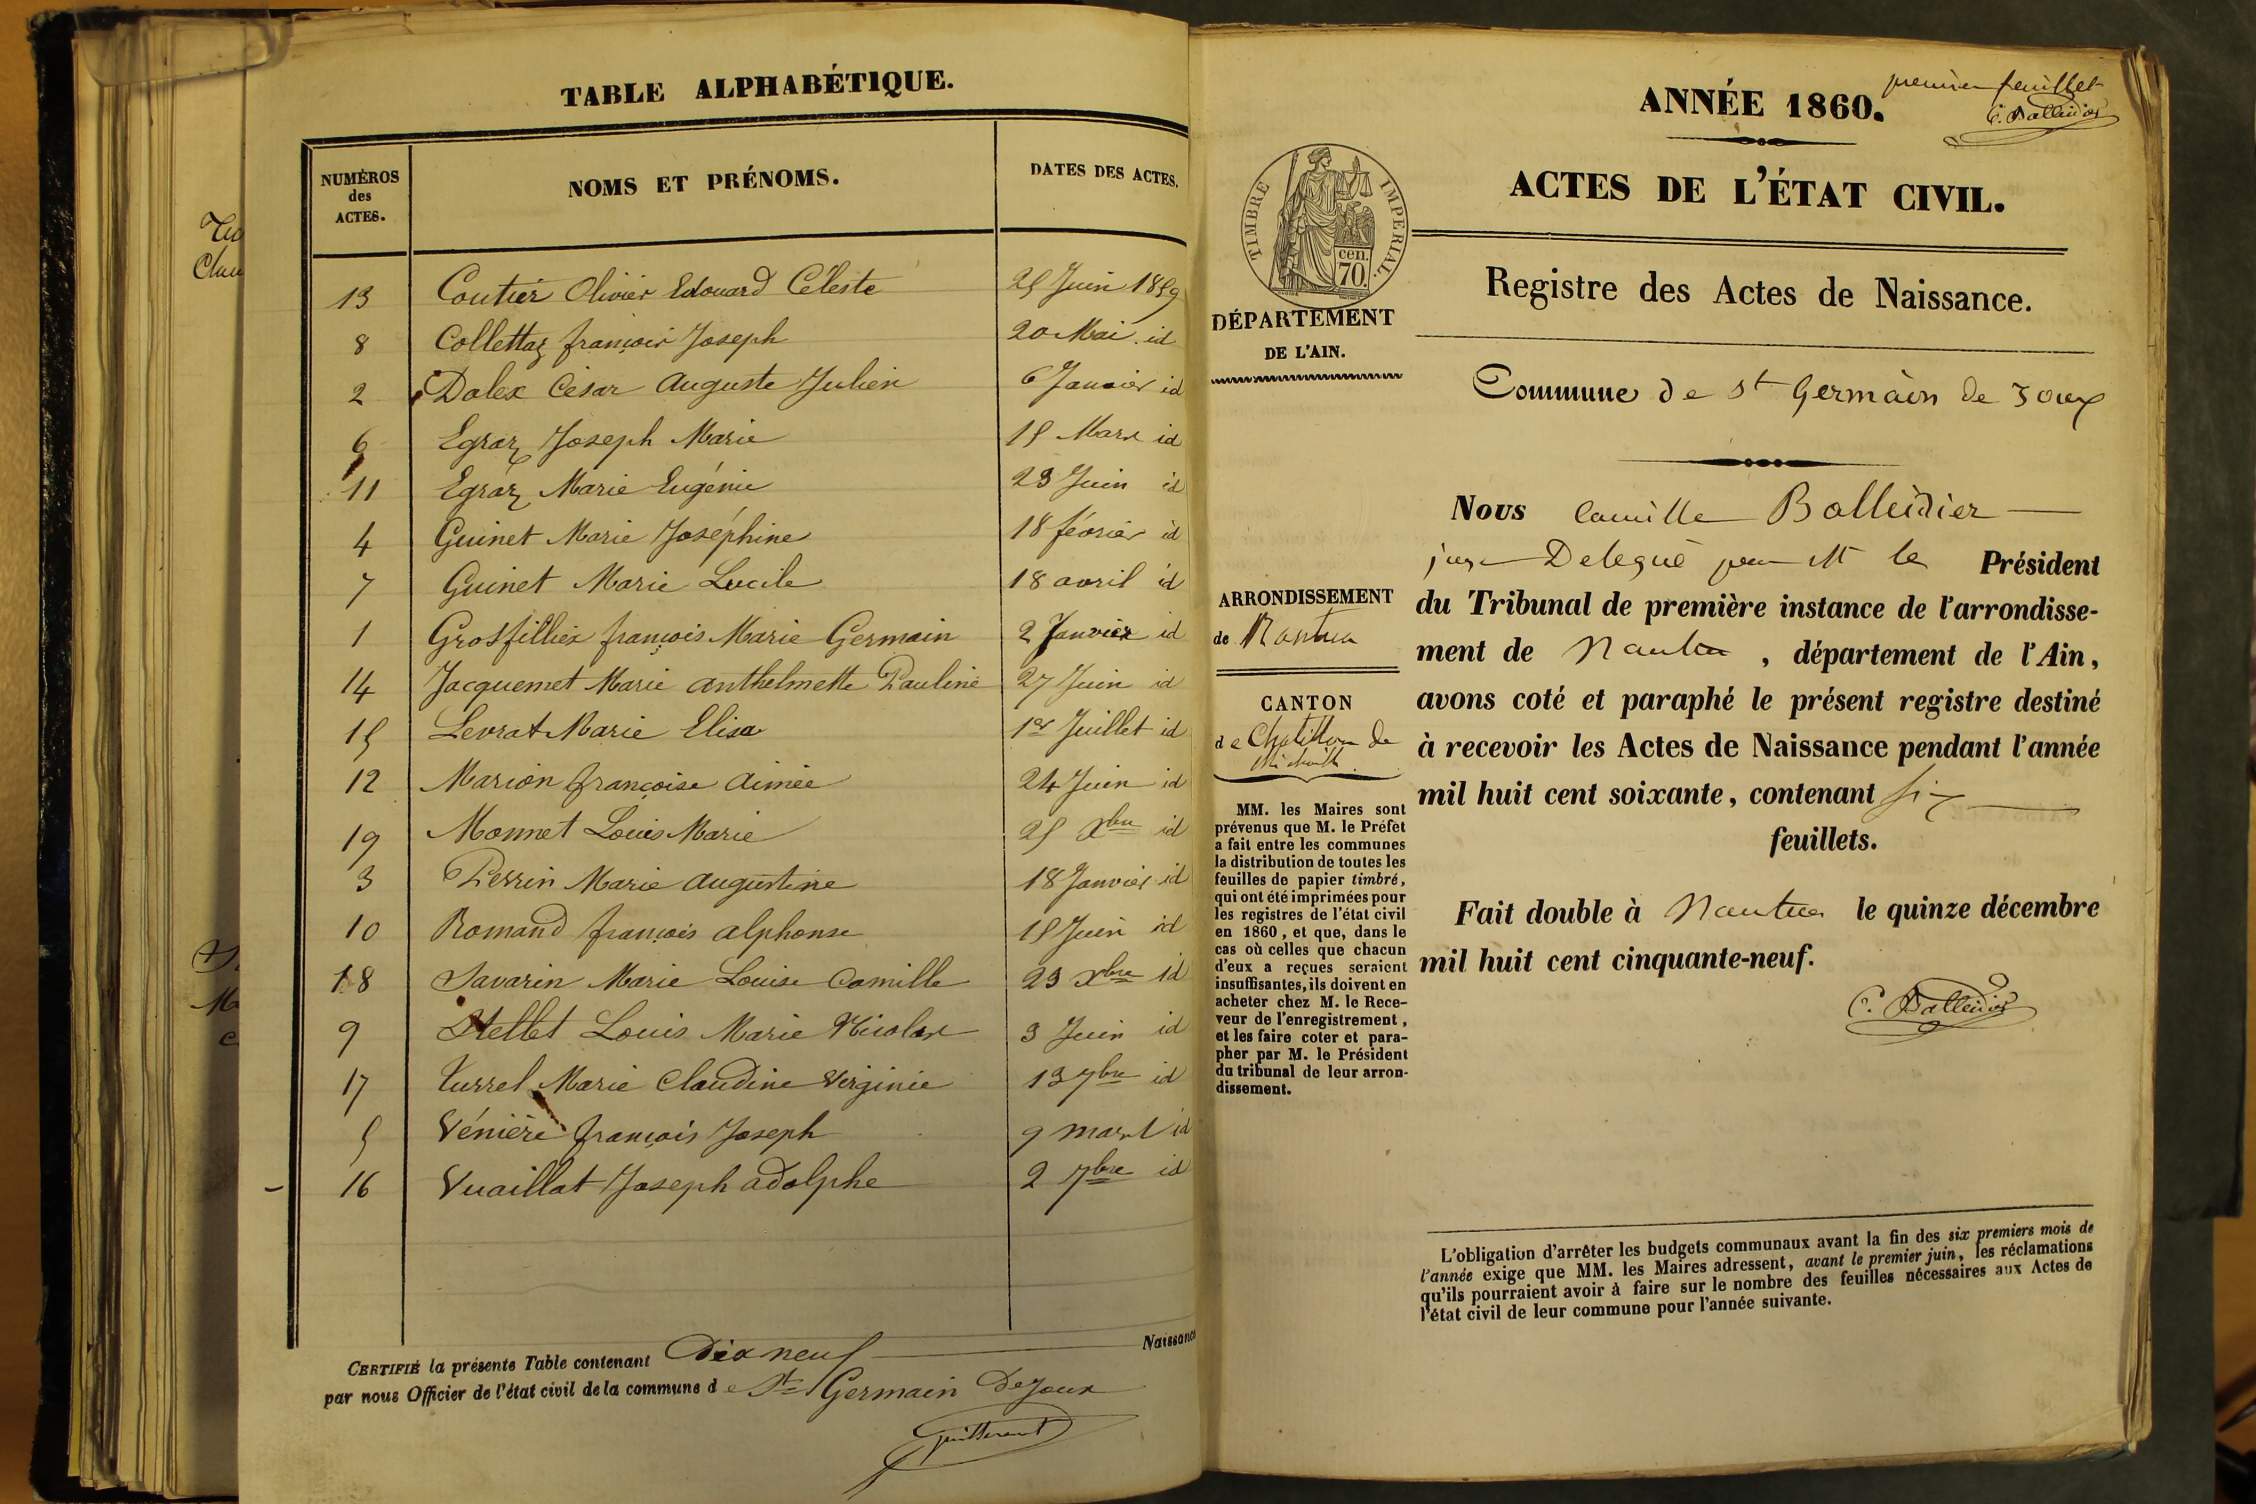 TABLE ALPHABÉTIQUE.
NUMÉROS des ACTES. NOMS ET PRÉNOMS. DATES DES ACTES.
13 Coutier Olivier Edouard Céleste 25 Juin 1859
8 Collettaz françois Joseph 20 Mai id
2 Dalex César Auguste Julien 6 Janvier id
6 Egraz Joseph Marie 15 Mars id
11 Egraz Marie Eugénie 23 Juin id
4 Guinet Marie Joséphine 18 février id
7 Guinet Marie Lucile 18 avril id
1 Grosfillier françois Marie Germain 2 Janvier id
14 Jacquemet Marie Anthelmette Pauline 27 Juin id
15 Levrat Marie Elisa 1er Juillet id
12 Marion françoise Aimée 24 Juin id
19 Monnet Louis Marie 25 Xbre id
3 Perrin Marie Augustine 18 Janvier id
10 Romand françois alphonse 15 Juin id
18 Savarin Marie Louise Camille 23 Xbre id
9 Stellet Louis Marie Nicolas 3 Juin id
17 Turrel Marie Claudine Virginie 13 7bre id
5 Vénière françois Joseph 9 mars id
16 Vuaillat Joseph adolphe 2 7bre id
CERTIFIÉ la présente Table contenant Dix neuf Naissance
par nous Officier de l'état civil de la commune de St Germain De Joux
premier feuillet
C. Balleidier
ANNÉE 1860.
ACTES DE L'ÉTAT CIVIL.
TIMBRE IMPÉRIAL.
cen. 70.
Registre des Actes de Naissance.
DÉPARTEMENT
DE L'AIN.
Commune de St Germain de Joux
Nous Camille Balleidier
juge Délégué par M le Président
du Tribunal de première instance de l'arrondisse-
ment de Nantua, département de l'Ain,
avons coté et paraphé le présent registre destiné
à recevoir les Actes de Naissance pendant l'année
mil huit cent soixante, contenant six
feuillets.
Fait double à Nantua le quinze décembre
mil huit cent cinquante-neuf.
C. Balleidier
ARRONDISSEMENT
de Nantua
CANTON
de Chatillon de
Michaille
MM. les Maires sont
prévenus que M. le Préfet
a fait entre les communes
la distribution de toutes les
feuilles de papier timbré,
qui ont été imprimées pour
les registres de l'état civil
en 1860, et que, dans le
cas où celles que chacun
d'eux a reçues seraient
insuffisantes, ils doivent en
acheter chez M. le Rece-
veur de l'enregistrement,
et les faire coter et para-
pher par M. le Président
du tribunal de leur arron-
dissement.
L'obligation d'arrêter les budgets communaux avant la fin des six premiers mois de
l'année exige que MM. les Maires adressent, avant le premier juin, les réclamations
qu'ils pourraient avoir à faire sur le nombre des feuilles nécessaires aux Actes de
l'état civil de leur commune pour l'année suivante.